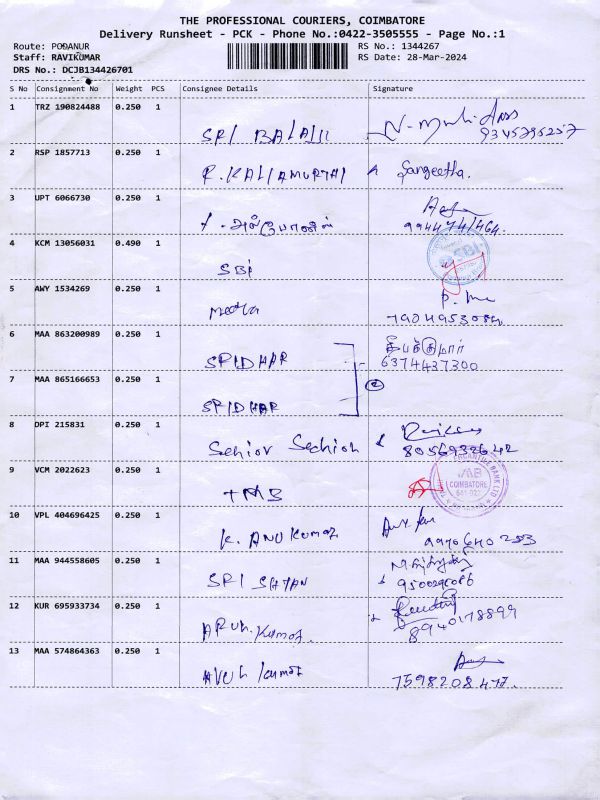 THE PROFESSIONAL COURIERS, COIMBATORE
Delivery Runsheet - PCK - Phone No.:0422-3505555 - Page No.:1
Route: PODANUR
Staff: RAVIKUMAR
DRS No.: DCJB134426701
RS No.: 1344267
RS Date: 28-Mar-2024
S No Consignment No Weight PCS Consignee Details Signature
1 TRZ 190824488 0.250 1 SRI BALAJI
2 RSP 1857713 0.250 1 R. KALIAMURTHI Sangeetha.
3 UPT 6066730 0.250 1
4 KCM 13056031 0.490 1 SBI
SBI
5 AWY 1534269 0.250 1
6 MAA 863200989 0.250 1 SRIDHAR
6374437300
7 MAA 865166653 0.250 1 SRIDHAR
2
8 DPI 215831 0.250 1 Senior Section
9 VCM 2022623 0.250 1 TMB
COIMBATORE
10 VPL 404696425 0.250 1 K. ANU KUMAR
9976640253
11 MAA 944558605 0.250 1 SRI
12 KUR 695933734 0.250 1 ARUN. Kumar.
8940178899
13 MAA 574864363 0.250 1 Kumar
7598208477.